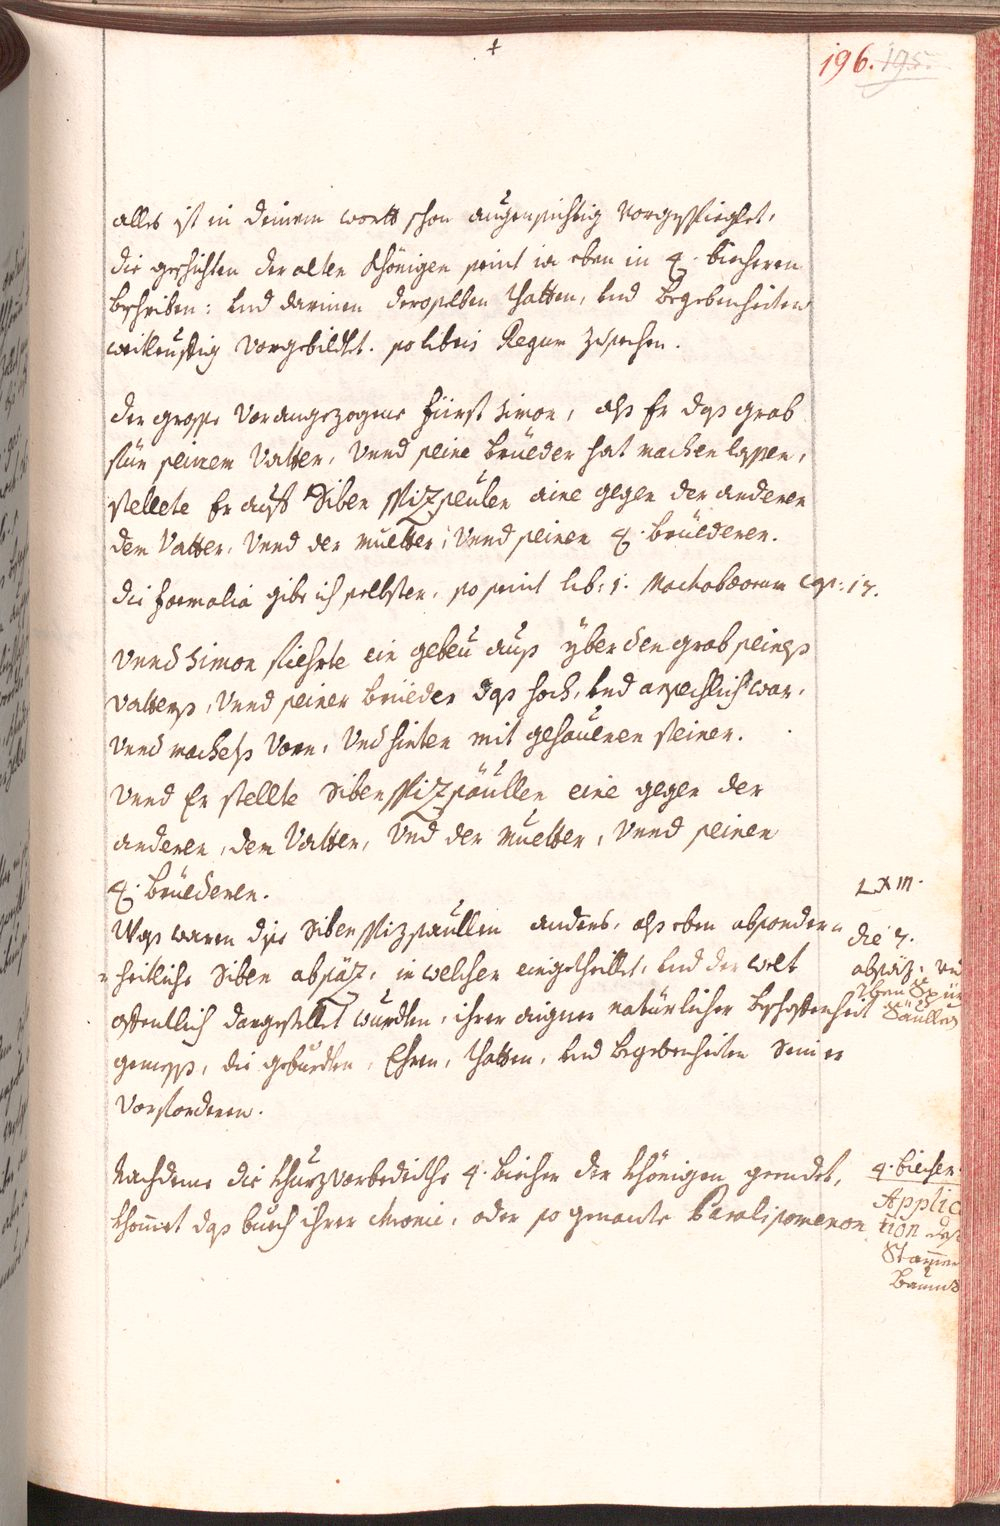 +
196. 195.
alles ist in deinem wortt schon augensichtig Vorgespieglet,
die geschichten der alten Khönigen seint ia eben in 4. biecheren
beschriben: und darinen deroselben thatten, und begebenheiten
weitleuffig Vorgebildtet. so libris Regum zusechen.
der grosse Vorangezogene Fürst Simon, alß Er dass grab
für seinem Vatter, Unnd seine brüeder hat machen lassen,
stellete Er auff Siben Spitzseulen aine gegen der anderen
dem Vatter, Unnd der Muetter, Unnd seinen 4. brüederen.
die Formalia gibe ich selbsten, so seint lib: 1. Machabæorum Cap: 13.
Unnd Simon fiehrte ein gebeu auff yber den grab seines
Vatterß, Unnd seiner brüeder dass hoch, und ansechlich war,
Unnd machets Vorn, Und hinten mit gehauenen steinen.
Unnd Er stellte Siben Spitzsäullen eine gegen der
anderen, dem Vatter, Und der Muetter, Unnd seinen
4. brüederen.
Wass waren dise Siben Spizsaullen anders, alß eben absonder-
-heitliche Siben absätz, in welchen eingetheillet, und der welt
offentlich dargestellet wurdten, ihrer aigner natürlicher beschaffenheit
gemess, die geburdten, Ehren, thatten, und begebenheiten Seiner
Vorforderen.
LXIII.
die 7.
absäz,
Säullen
Nachdeme die khurz Vorbedeithe 4. biecher der khönigen geendet,
khommet dass buech ihrer chronic, oder so genante Paralipomenon
4. biecher.
Applic
tion dess
Stammen
Baums